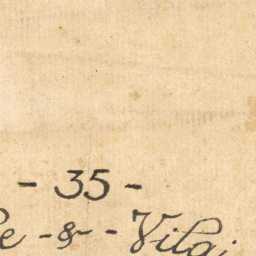 - 35 -
e - & - Vilai